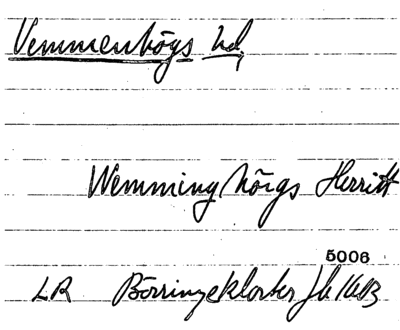 Vemmenhögs hd,
Wemming högs Herritt
5006
LR Börringekloster Jb 1603